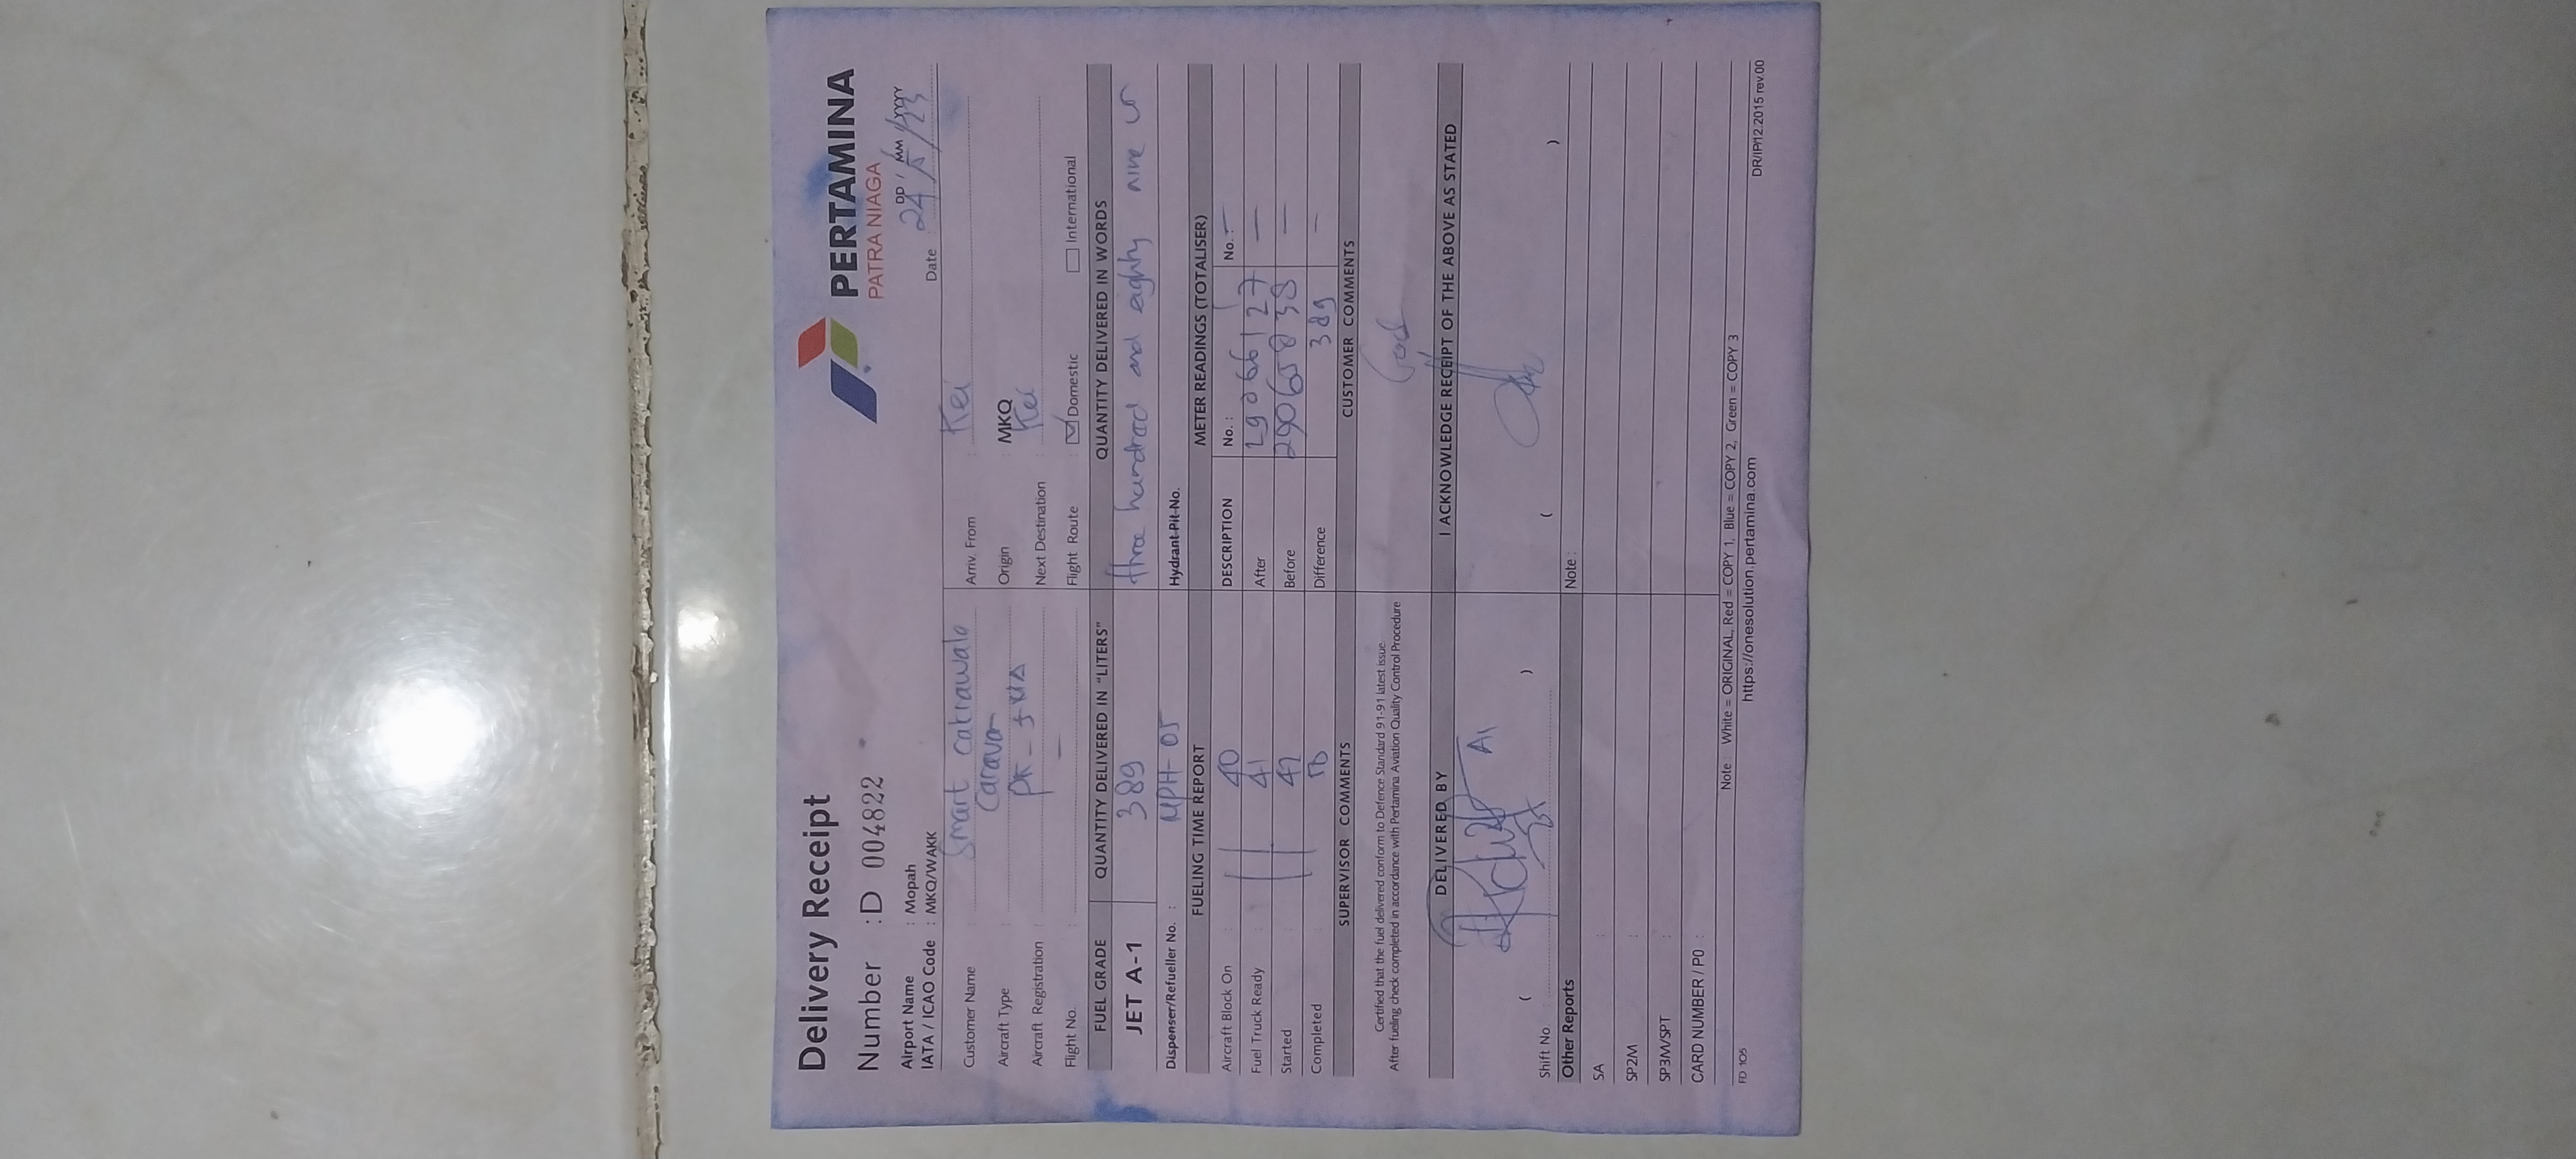 Delivery Receipt
PERTAMINA
PATRA NIAGA
Number : D 004822
DD / MM / YYYY
Date : 24 / 5 / 23
Airport Name : Mopah
IATA / ICAO Code : MKQ/WAKK
Customer Name : Smart Cakrawala
Arriv. From : Kei
Aircraft Type : Caravan
Origin : MKQ
Aircraft Registration : PK -
Next Destination : Kei
Flight No. : —
Flight Route : Domestic International
FUEL GRADE QUANTITY DELIVERED IN "LITERS" QUANTITY DELIVERED IN WORDS
JET A-1 389 three hundred and eighty nine
Dispenser/Refueller No. : MPH-05 Hydrant Pit No.
FUELING TIME REPORT METER READINGS (TOTALISER)
Aircraft Block On : 11 40 DESCRIPTION No.: No.: —
Fuel Truck Ready : 41 After 29066127 —
Started : 42 Before 29065738 —
Completed : 50 Difference 389 —
SUPERVISOR COMMENTS CUSTOMER COMMENTS
Certified that the fuel delivered conform to Defence Standard 91-91 latest issue.
After fueling check completed in accordance with Pertamina Aviation Quality Control Procedure
Good
DELIVERED BY I ACKNOWLEDGE RECEIPT OF THE ABOVE AS STATED
( ) ( )
Shift No.
Other Reports Note :
SA :
SP2M :
SP3M/SPT :
CARD NUMBER / PO :
Note White = ORIGINAL, Red = COPY 1, Blue = COPY 2, Green = COPY 3
FD 105 https://onesolution.pertamina.com DR/IP/12.2015 rev.00